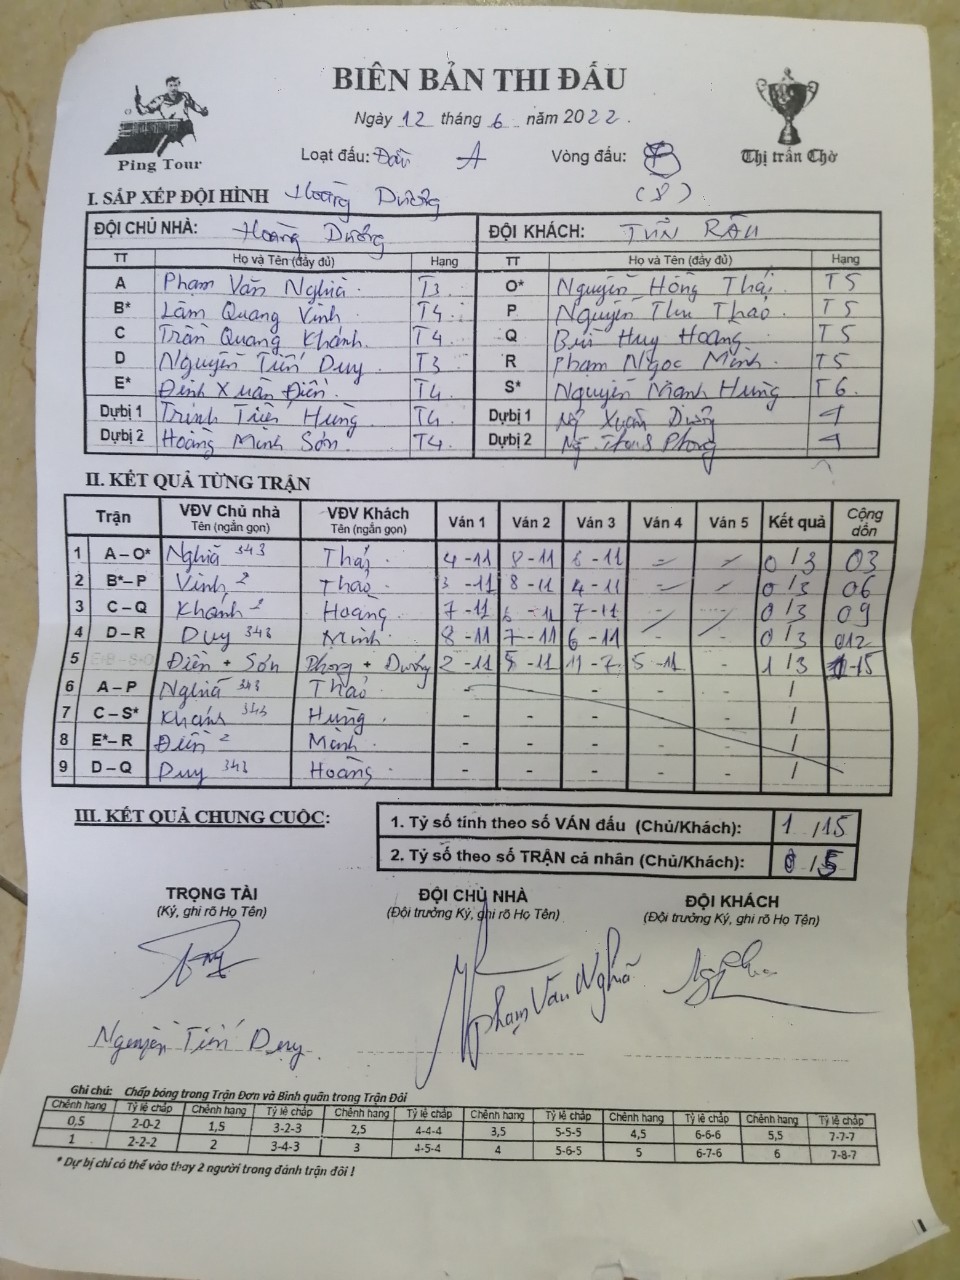 BIÊN BẢN THI ĐẤU
Ngày 12 tháng 6 năm 2022.
Ping Tour
Thị trấn Chờ
Loạt đấu: A Vòng đấu:
I. SẮP XẾP ĐỘI HÌNH Hoàng Dương (8)
ĐỘI CHỦ NHÀ: Hoàng Dương ĐỘI KHÁCH: TUẤN RÂU
TT Họ và Tên (đầy đủ) Hạng TT Họ và Tên (đầy đủ) Hạng
A Phạm Văn Nghĩa T3 O* Nguyễn Hồng Thái T5
B* Lâm Quang Vinh T4 P Nguyễn Thu Thảo T5
C Trần Quang Khánh T4 Q Bùi Huy Hoàng T5
D Nguyễn Tiến Duy T3 R Phạm Ngọc Minh T5
E* Đinh Xuân Điền T4 S* Nguyễn Mạnh Hùng T6
Dự bị 1 Trịnh Tiến Hùng T4 Dự bị 1 Ng Xuân Dương
Dự bị 2 Hoàng Minh Sơn T4 Dự bị 2 Ng Phong
II. KẾT QUẢ TỪNG TRẬN
Trận VĐV Chủ nhà Tên (ngắn gọn) VĐV Khách Tên (ngắn gọn) Ván 1 Ván 2 Ván 3 Ván 4 Ván 5 Kết quả Cộng dồn
1 A – O* Nghĩa 343 Thái 4-11 8-11 8-11 - - 0/3 03
2 B* – P Vinh 2 Thảo 3-11 8-11 4-11 - - 0/3 06
3 C – Q Khánh 2 Hoàng 7-11 6-11 7-11 - - 0/3 09
4 D – R Duy 343 Minh 8-11 7-11 6-11 - - 0/3 012
5 Điền + Sơn Phong + Dương 2-11 8-11 11-7 5-11 - 1/3 1-15
6 A – P Nghĩa 343 Thảo - - - - - /
7 C – S* Khánh 343 Hùng - - - - - /
8 E* – R Điền 2 Minh - - - - - /
9 D – Q Duy 343 Hoàng - - - - - /
III. KẾT QUẢ CHUNG CUỘC:
1. Tỷ số tính theo số VÁN đấu (Chủ/Khách): 1/15
2. Tỷ số theo số TRẬN cá nhân (Chủ/Khách): 0/5
TRỌNG TÀI ĐỘI CHỦ NHÀ ĐỘI KHÁCH
(Ký, ghi rõ Họ Tên) (Đội trưởng Ký, ghi rõ Họ Tên) (Đội trưởng Ký, ghi rõ Họ Tên)
Phạm Văn Nghĩa
Nguyễn Tiến Duy
Ghi chú: Chấp bóng trong Trận Đơn và Bình quân trong Trận Đôi
Chênh hạng Tỷ lệ chấp Chênh hạng Tỷ lệ chấp Chênh hạng Tỷ lệ chấp Chênh hạng Tỷ lệ chấp Chênh hạng Tỷ lệ chấp Chênh hạng Tỷ lệ chấp
0,5 2-0-2 1,5 3-2-3 2,5 4-4-4 3,5 5-5-5 4,5 6-6-6 5,5 7-7-7
1 2-2-2 2 3-4-3 3 4-5-4 4 5-6-5 5 6-7-6 6 7-8-7
* Dự bị chỉ có thể vào thay 2 người trong đánh trận đôi !